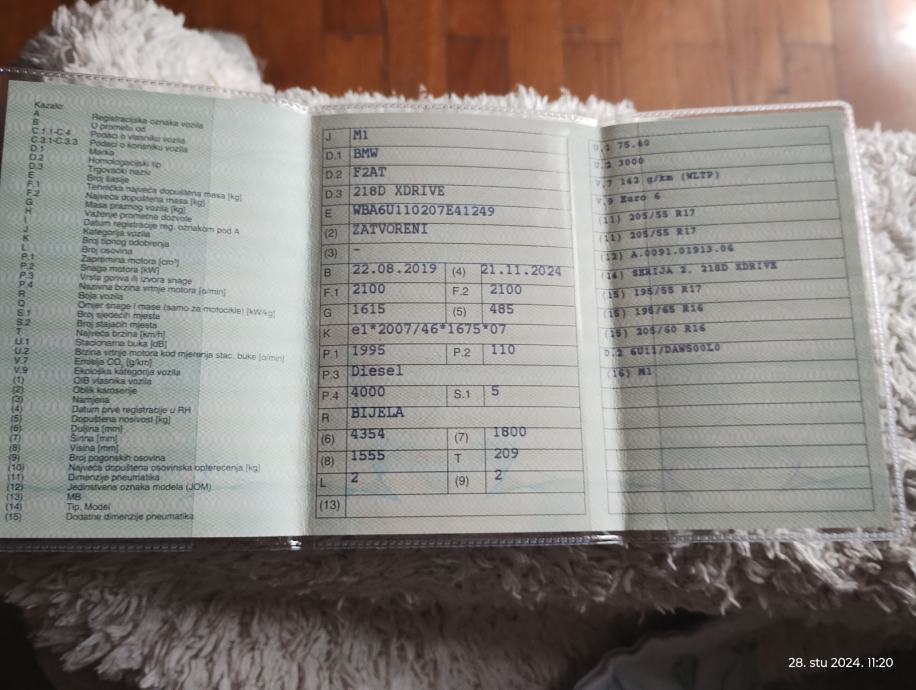 Kazalo:
A Registracijska oznaka vozila
B U prometu od
C.1.1-C.4 Podaci o vlasniku vozila
C.3.1-C.3.3 Podaci o korisniku vozila
D.1 Marka
D.2 Homologacijski tip
D.3 Trgovački naziv
E Broj šasije
F.1 Tehnička najveća dopuštena masa [kg]
F.2 Najveća dopuštena masa [kg]
G Masa praznog vozila [kg]
H Važenje prometne dozvole
I Datum registracije reg. oznakom pod A
J Kategorija vozila
K Broj tipnog odobrenja
L Broj osovina
P.1 Zapremina motora [cm³]
P.2 Snaga motora [kW]
P.3 Vrsta goriva ili izvora snage
P.4 Nazivna brzina vrtnje motora [o/min]
R Boja vozila
Q Omjer snage i mase (samo za motocikle) [kW/kg]
S.1 Broj sjedećih mjesta
S.2 Broj stajaćih mjesta
T Najveća brzina [km/h]
U.1 Stacionarna buka [dB]
U.2 Brzina vrtnje motora kod mjerenja stac. buke [o/min]
V.7 Emisija CO₂ [g/km]
V.9 Ekološka kategorija vozila
(1) OIB vlasnika vozila
(2) Oblik karoserije
(3) Namjena
(4) Datum prve registracije u RH
(5) Dopuštena nosivost [kg]
(6) Duljina [mm]
(7) Širina [mm]
(8) Visina [mm]
(9) Broj pogonskih osovina
(10) Najveća dopuštena osovinska opterećenja [kg]
(11) Dimenzije pneumatika
(12) Jedinstvena oznaka modela (JOM)
(13) MB
(14) Tip, Model
(15) Dodatne dimenzije pneumatika
J M1
D.1 BMW
D.2 F2AT
D.3 218D XDRIVE
E WBA6U110207E41249
(2) ZATVORENI
(3) -
B 22.08.2019 (4) 21.11.2024
F.1 2100 F.2 2100
G 1615 (5) 485
K e1*2007/46*1675*07
P.1 1995 P.2 110
P.3 Diesel
P.4 4000 S.1 5
R BIJELA
(6) 4354 (7) 1800
(8) 1555 T 209
L 2 (9) 2
(13)
U.1 75.60
U.2 3000
V.7 162 g/km (WLTP)
V.9 Euro 6
(11) 205/55 R17
(11) 205/55 R17
(12) A.0091.01913.06
(14) SERIJA 2. 218D XDRIVE
(15) 195/55 R17
(15) 195/65 R16
(15) 205/60 R16
D.2 6U11/DAW500L0
(16) M1
28. stu 2024. 11:20